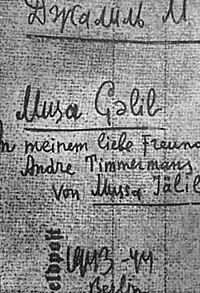 Джалиль М.
Musa Çəlil
In meinem liebe Freund
Andre Timmermans
Von Mussa Jälil
1943-44
Berlin